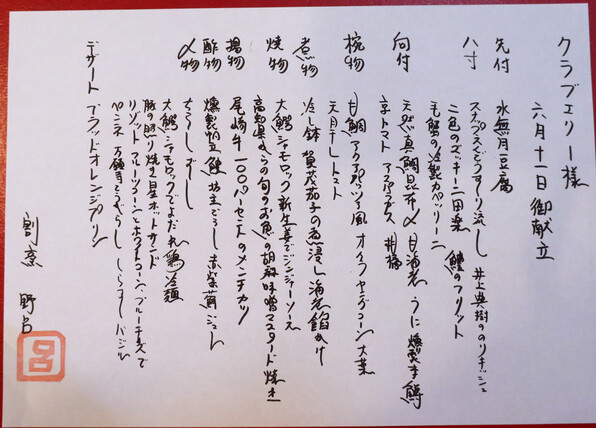 クラブエリー様
六月十一日 御献立
先付 水無月豆腐
八寸 スナップえんどうすり流し 井上真樹ののりキッシュ
二色のズッキーニ田楽 鱧のフリット
毛蟹の冷製カペッリーニ
向付 天然真鯛昆布〆 甘海老 うに 燻製 鱒
辛トマト アスパラガス 井
椀物 甘鯛 アクアパッツァ風 オイフ ヤングコーン 大葉
天日干しトマト
煮物 冷し鉢 賀茂茄子の煮浸し 海老餡かけ
焼物 大鰐シャモロック 新生姜でジンジャーソース
高知県からの旬のお魚の胡麻味噌マスタード焼き
揚物 尾崎牛一〇〇パーセントのメンチカツ
酢物 燻製帆立 鮭 坊主 赤茄子ジュレ
〆物 ちらしずし
大鰐シャモロックでよだれ鶏冷麺
豚の照り焼き ホットサンド
リゾット フルーツコーンとホワイトコーン、ブルーチーズで
ペンネ 万願寺とうがらし しらす バジル
デザート ブラッドオレンジプリン
割烹 野呂
呂